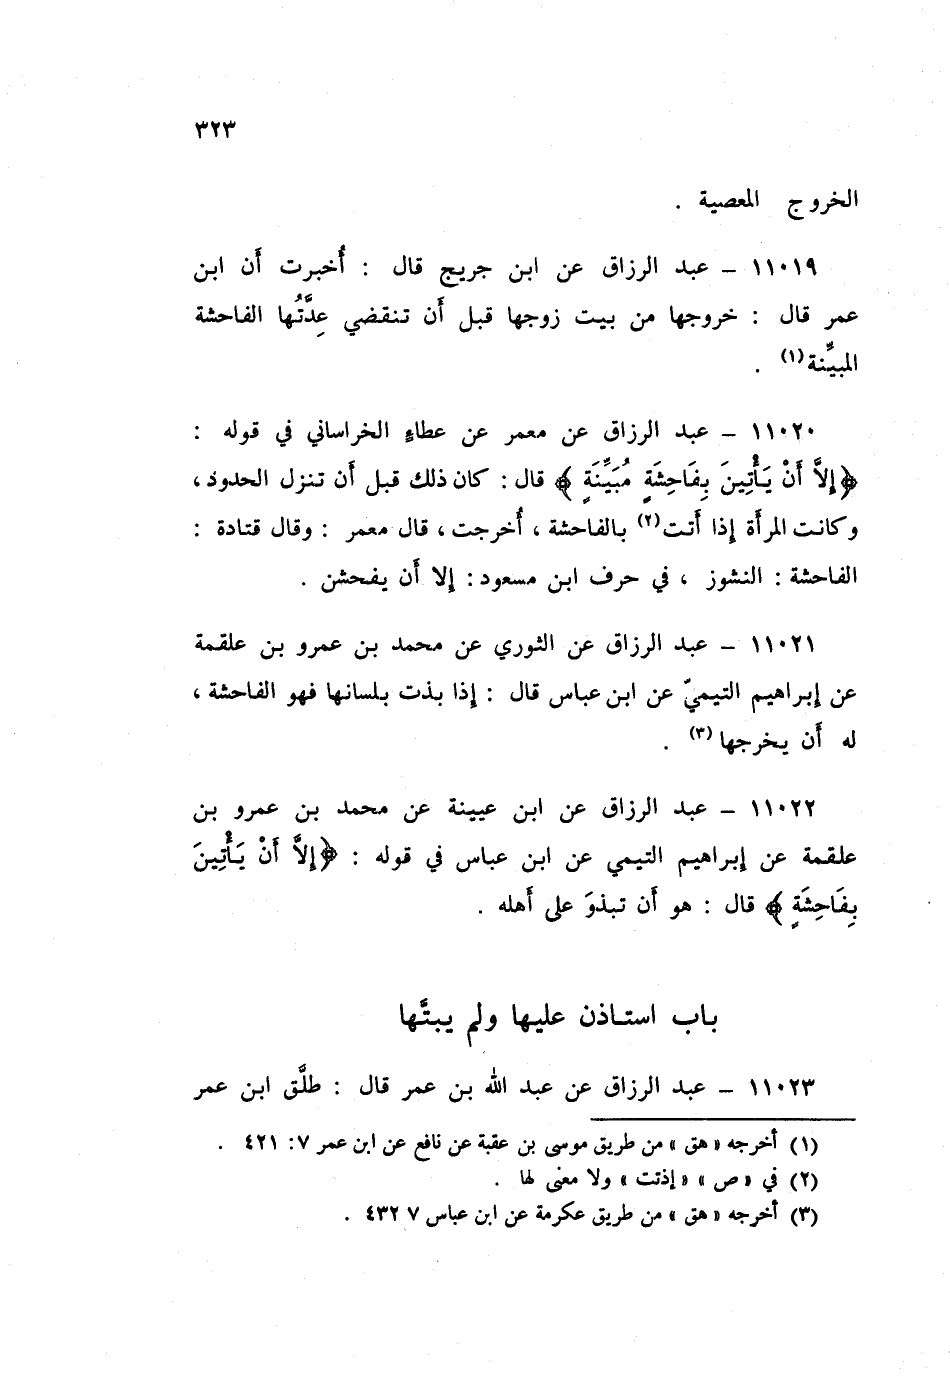 ٣٢٣
الخروج المعصية .
١١٠١٩ – عبد الرزاق عن ابن جريج قال : أُخبرت أَن ابن
عمر قال : خروجها من بيت زوجها قبل أَن تنقضي عِدَّتُها الفاحشة
المبيِّنة(١) .
١١٠٢٠ – عبد الرزاق عن معمر عن عطاءٍ الخراساني في قوله :
﴿إِلاَّ أَنْ يَأْتِينَ بِفَاحِشَةٍ مُبَيِّنَةٍ﴾ قال : كان ذلك قبل أَن تنزل الحدود ،
وكانت المرأَة إِذا أَتت(٢) بالفاحشة ، أُخرجت ، قال معمر : وقال قتادة :
الفاحشة : النشوز ، في حرف ابن مسعود : إِلا أَن يفحشن .
١١٠٢١ – عبد الرزاق عن الثوري عن محمد بن عمرو بن علقمة
عن إِبراهيم التيميّ عن ابن عباس قال : إِذا بذت بلسانها فهو الفاحشة ،
له أَن يخرجها(٣) .
١١٠٢٢ – عبد الرزاق عن ابن عيينة عن محمد بن عمرو بن
علقمة عن إِبراهيم التيمي عن ابن عباس في قوله : ﴿إِلاَّ أَنْ يَأْتِينَ
بِفَاحِشَةٍ﴾ قال : هو أَن تبذوَ على أَهله .
باب استاذن عليها ولم يبتَّها
١١٠٢٣ – عبد الرزاق عن عبد الله بن عمر قال : طلَّق ابن عمر
(١) أخرجه «هق» من طريق موسى بن عقبة عن نافع عن ابن عمر ٧: ٤٢١ .
(٢) في «ص» «إذتت» ولا معنى لها .
(٣) أخرجه «هق» من طريق عكرمة عن ابن عباس ٧ ٤٣٢ .